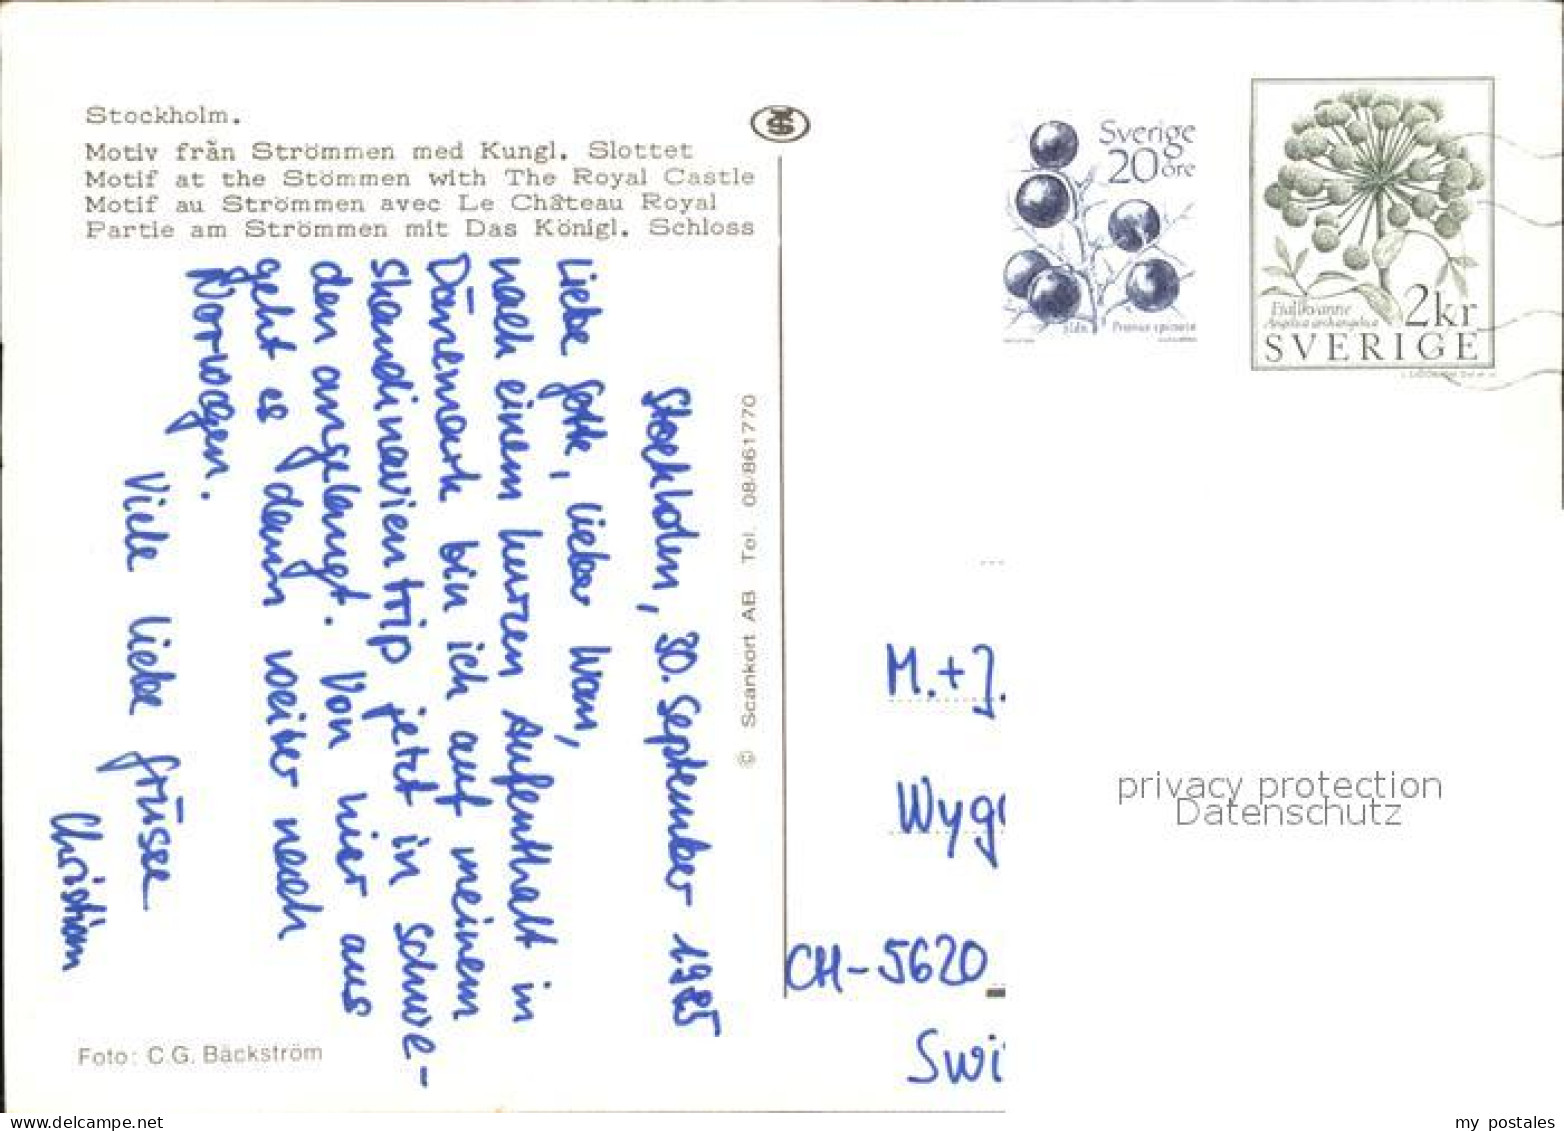 Stockholm.
Motiv från Strömmen med Kungl. Slottet
Motif at the Stömmen with The Royal Castle
Motif au Strömmen avec Le Château Royal
Partie am Strömmen mit Das Königl. Schloss
Stockholm, 30. September 1985
Liebe Gotte, lieber
nach einem kurzen Aufenthalt in
Dänemark bin ich auf meinem
Skandinavientrip jetzt in Schwe-
den angelangt. Von hier aus
geht es dann weiter nach
Norwegen.
Viele liebe Grüsse
Christian
Foto: C.G. Bäckström
© Scankort AB Tel. 08/861770
Sverige
20 öre
Slån Prunus spinosa
Fjällkvanne
Angelica archangelica
2kr
SVERIGE
M.+J.
Wyg
CH-5620
Swi
privacy protection
Datenschutz
my postales